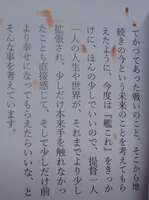 てかつてあった戦いのこと、そこから地
続きの今という未来のことを考えてもら
えたように、今度は『艦これ』をきっか
けに、ほんの少しでいいので、提督一人
一人の人生や世界が、それまでより少し
拡張され、少しだけ本来手を触れなかっ
たことも直接感じて、そして少しだけ前
より幸せになってもらえたらいいな、と
そんな事を考えています。